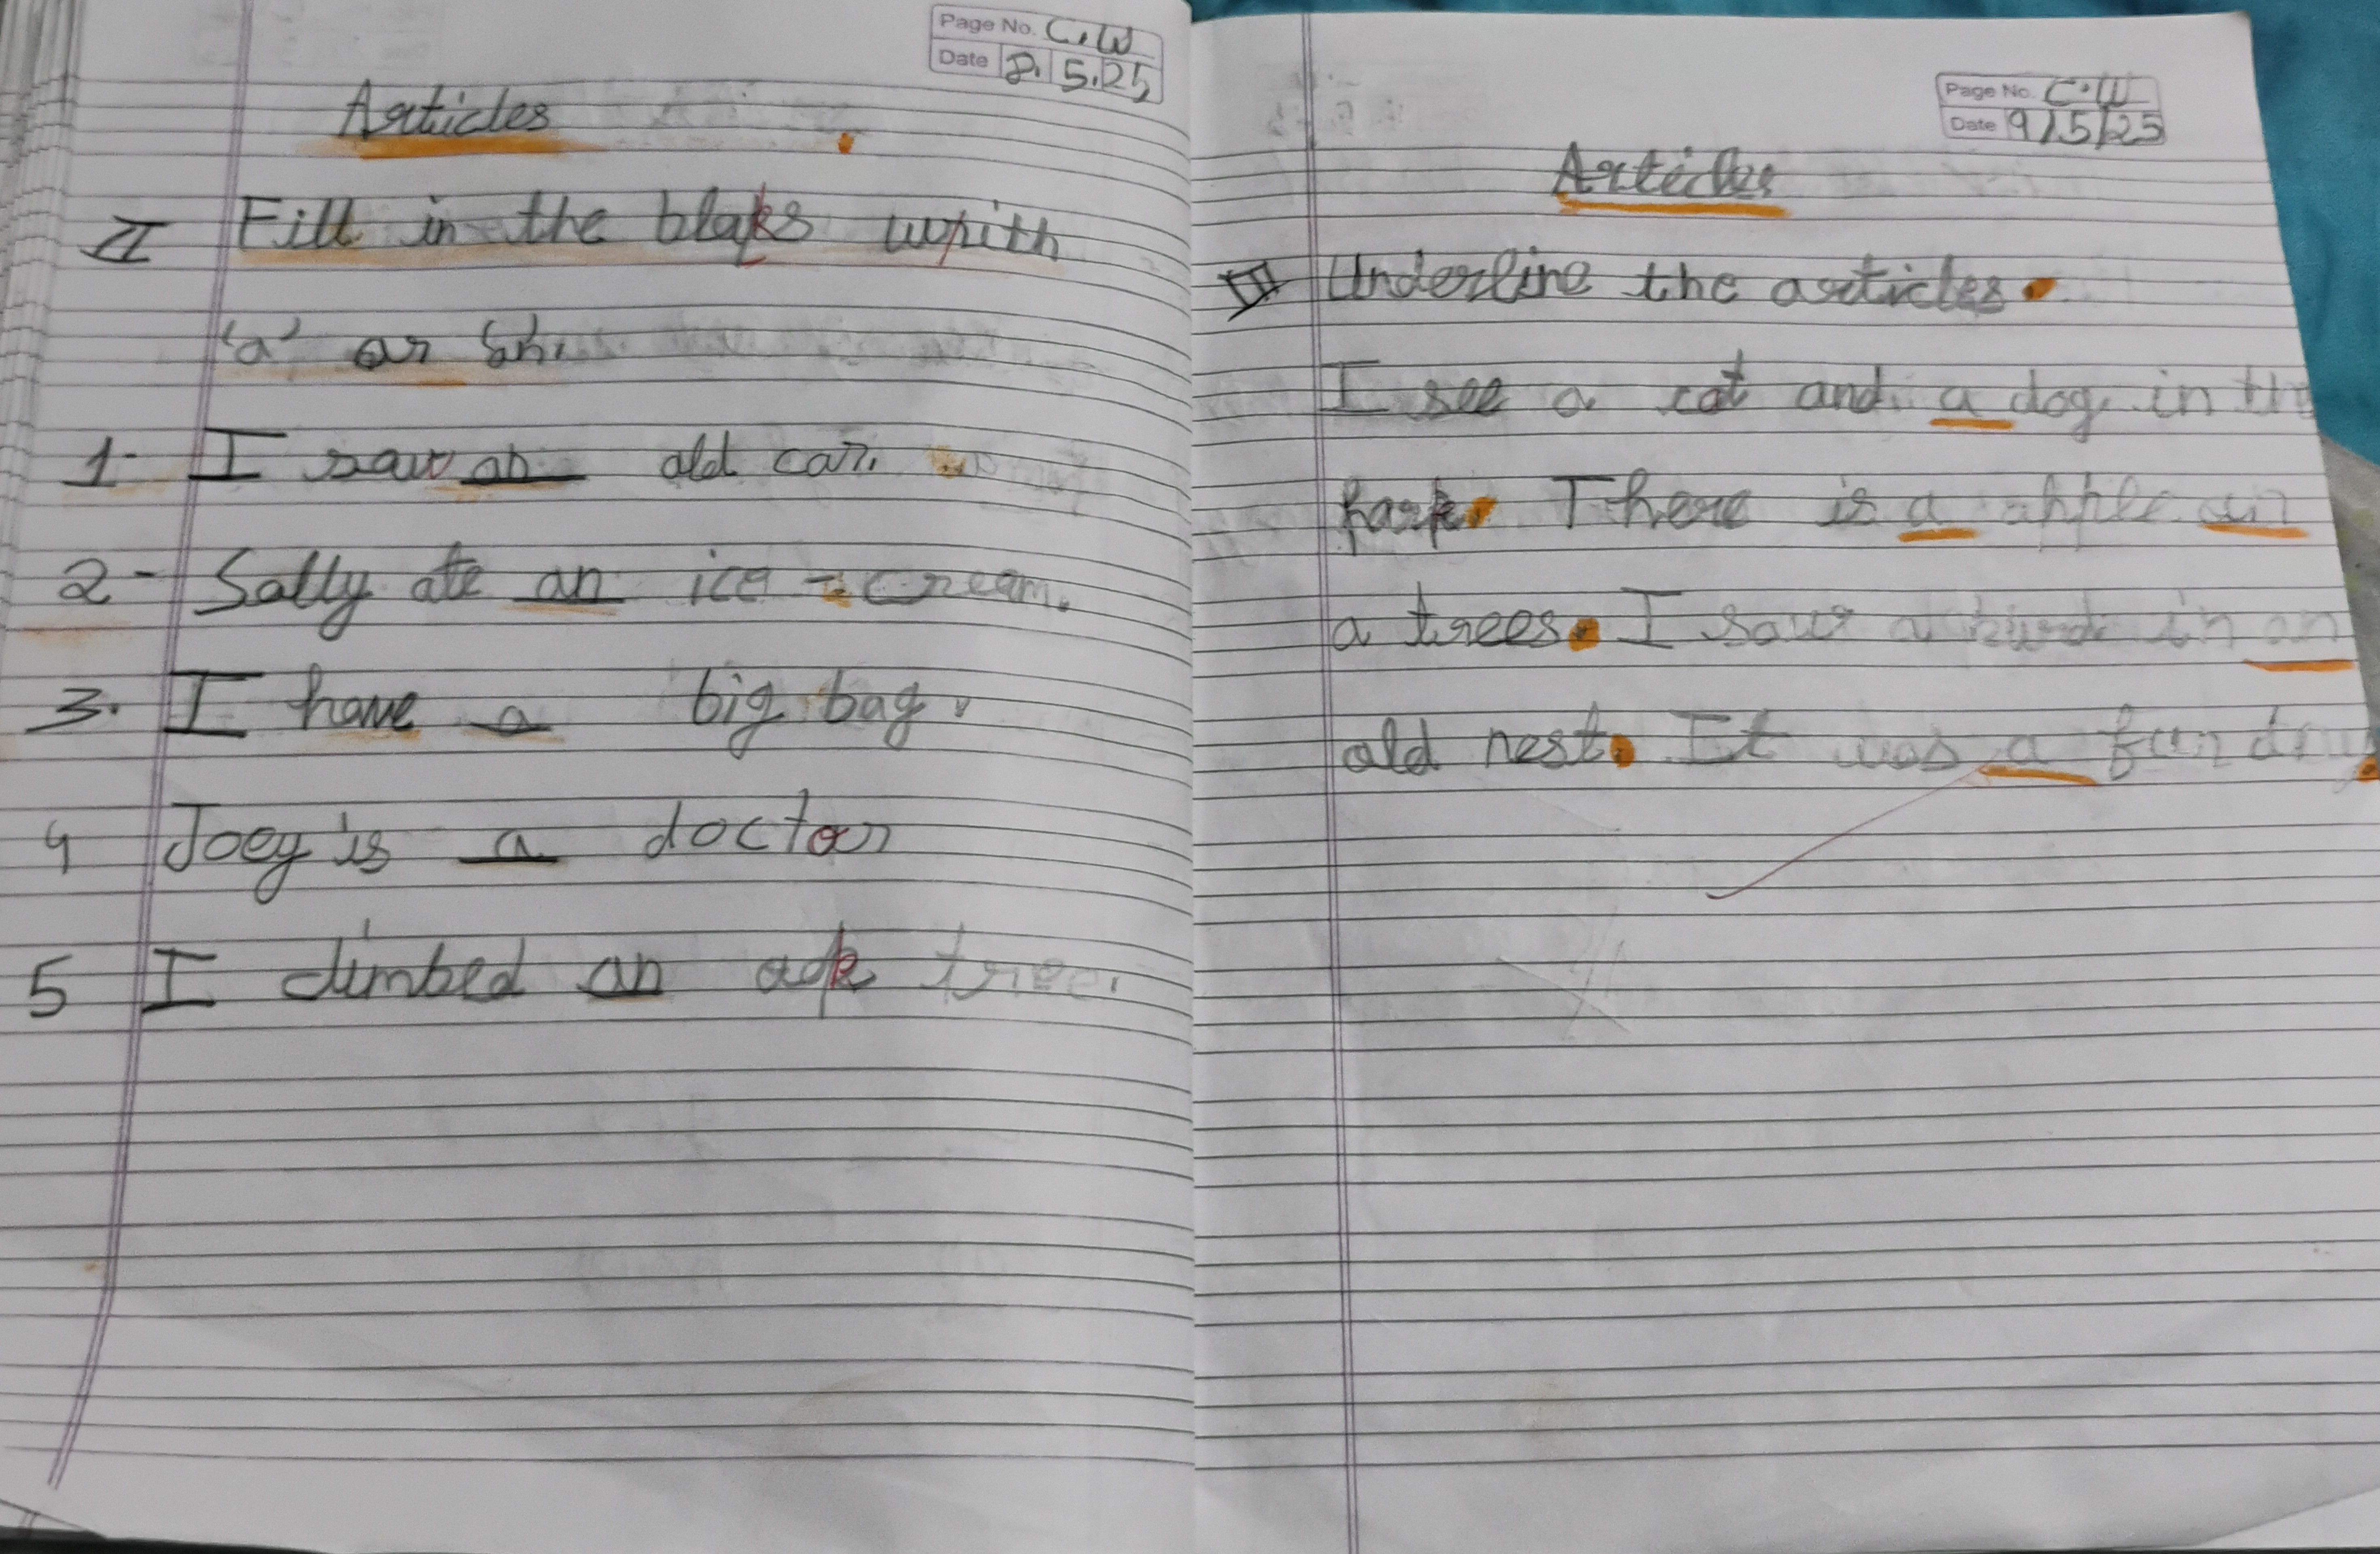 Page No. C.W
Date 8. 5.25
Articles
II Fill in the blaks wrrith
'a' or an.
1. I saw an old car.
2- Sally ate an ice-cream.
3. I have a big bag.
4 Joey is a doctor
5 I climbed an aok tree.
Page No. C.W
Date 9/5/25
Articles
III Underline the articles.
I see a cat and a dog in the
park. There is a apple in
a trees. I saw a bird in an
old nest. It was a fun day.